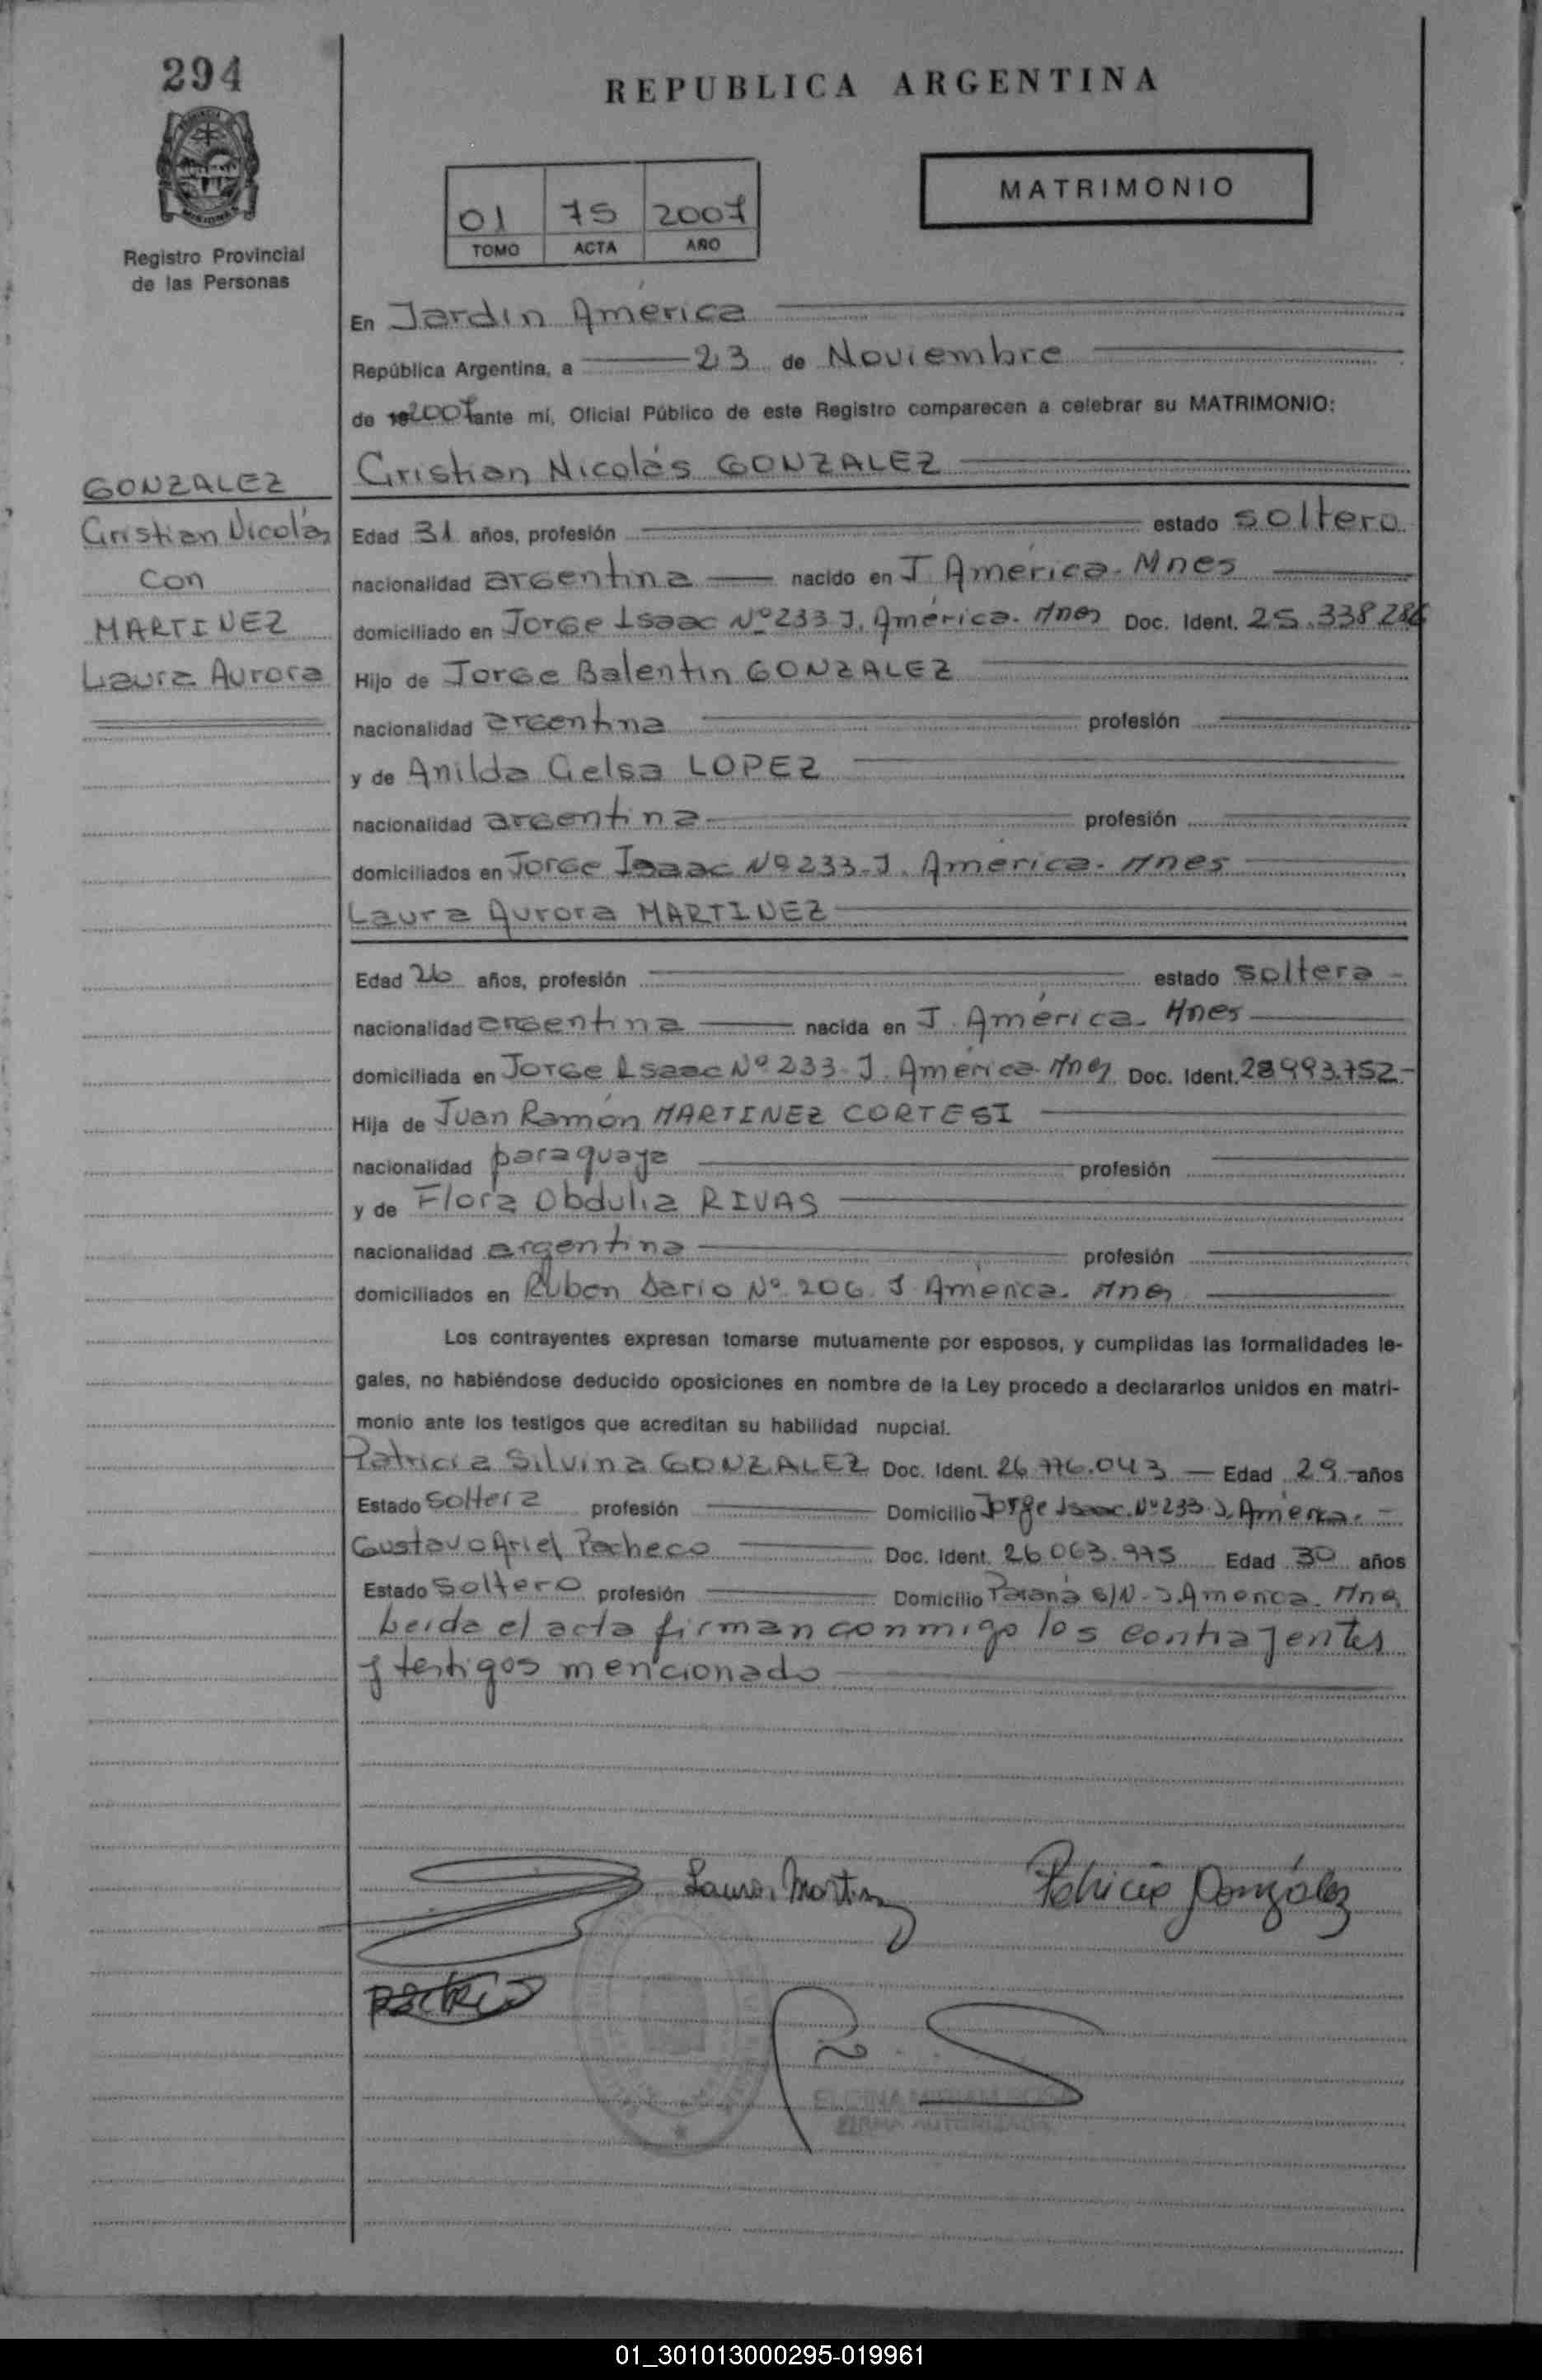 294
REPUBLICA ARGENTINA
MATRIMONIO
01 75 2007
TOMO ACTA AÑO
Registro Provincial
de las Personas
En Jardin América
República Argentina, a 23 de Noviembre
de 19 2007 ante mí, Oficial Público de este Registro comparecen a celebrar su MATRIMONIO:
GONZALEZ
Cristian Nicolás
con
MARTINEZ
Laura Aurora
Cristian Nicolás GONZALEZ
Edad 31 años, profesión estado soltero
nacionalidad argentina nacido en J América. Mnes
domiciliado en Jorge Isaac Nº 233 J. América. Mnes Doc. Ident. 25.338.286
Hijo de Jorge Balentin GONZALEZ
nacionalidad argentina profesión
y de Anilda Celsa LOPEZ
nacionalidad argentina profesión
domiciliados en Jorge Isaac Nº 233-J. América. Mnes
Laura Aurora MARTINEZ
Edad 26 años, profesión estado soltera
nacionalidad argentina nacida en J. América. Mnes
domiciliada en Jorge Isaac Nº 233-J. América Mnes Doc. Ident. 28.993.752-
Hija de Juan Ramón MARTINEZ CORTESI
nacionalidad paraguaya profesión
y de Flora Obdulia RIVAS
nacionalidad argentina profesión
domiciliados en Ruben Dario Nº 206. J América. Mnes
Los contrayentes expresan tomarse mutuamente por esposos, y cumplidas las formalidades le-
gales, no habiéndose deducido oposiciones en nombre de la Ley procedo a declararlos unidos en matri-
monio ante los testigos que acreditan su habilidad nupcial.
Patricia Silvina GONZALEZ Doc. Ident. 26.776.043 Edad 29 años
Estado soltera profesión Domicilio Jorge Isaac. Nº 233 J. América.
Gustavo Ariel Pacheco Doc. Ident. 26.063.975 Edad 30 años
Estado soltero profesión Domicilio Paraná S/N - J. America. Mnes
Leida el acta firman conmigo los contrayentes
y testigos mencionado
Laura Martinez
Patricia González
FIRMA AUTORIZADA
01_301013000295-019961